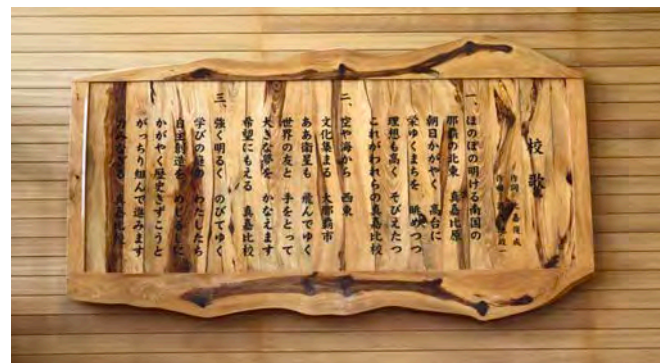 校歌
作詞 嘉俊成
作曲 政一
一、ほのぼの明ける南国の
那覇の北東 真嘉比原
朝日かがやく 高台に
栄ゆくまちを 眺めつつ
理想も高く そびえたつ
これがわれらの真嘉比校
二、空や海から 西東
文化集まる 大那覇市
ああ衛星も 飛んでゆく
世界の友と 手をとって
大きな夢を かなえます
希望にもえる 真嘉比校
三、強く明るく のびてゆく
学びの庭の わたしたち
自主創造を めじるしに
かがやく歴史きずこうと
がっちり組んで進みます
みなぎる 真嘉比校